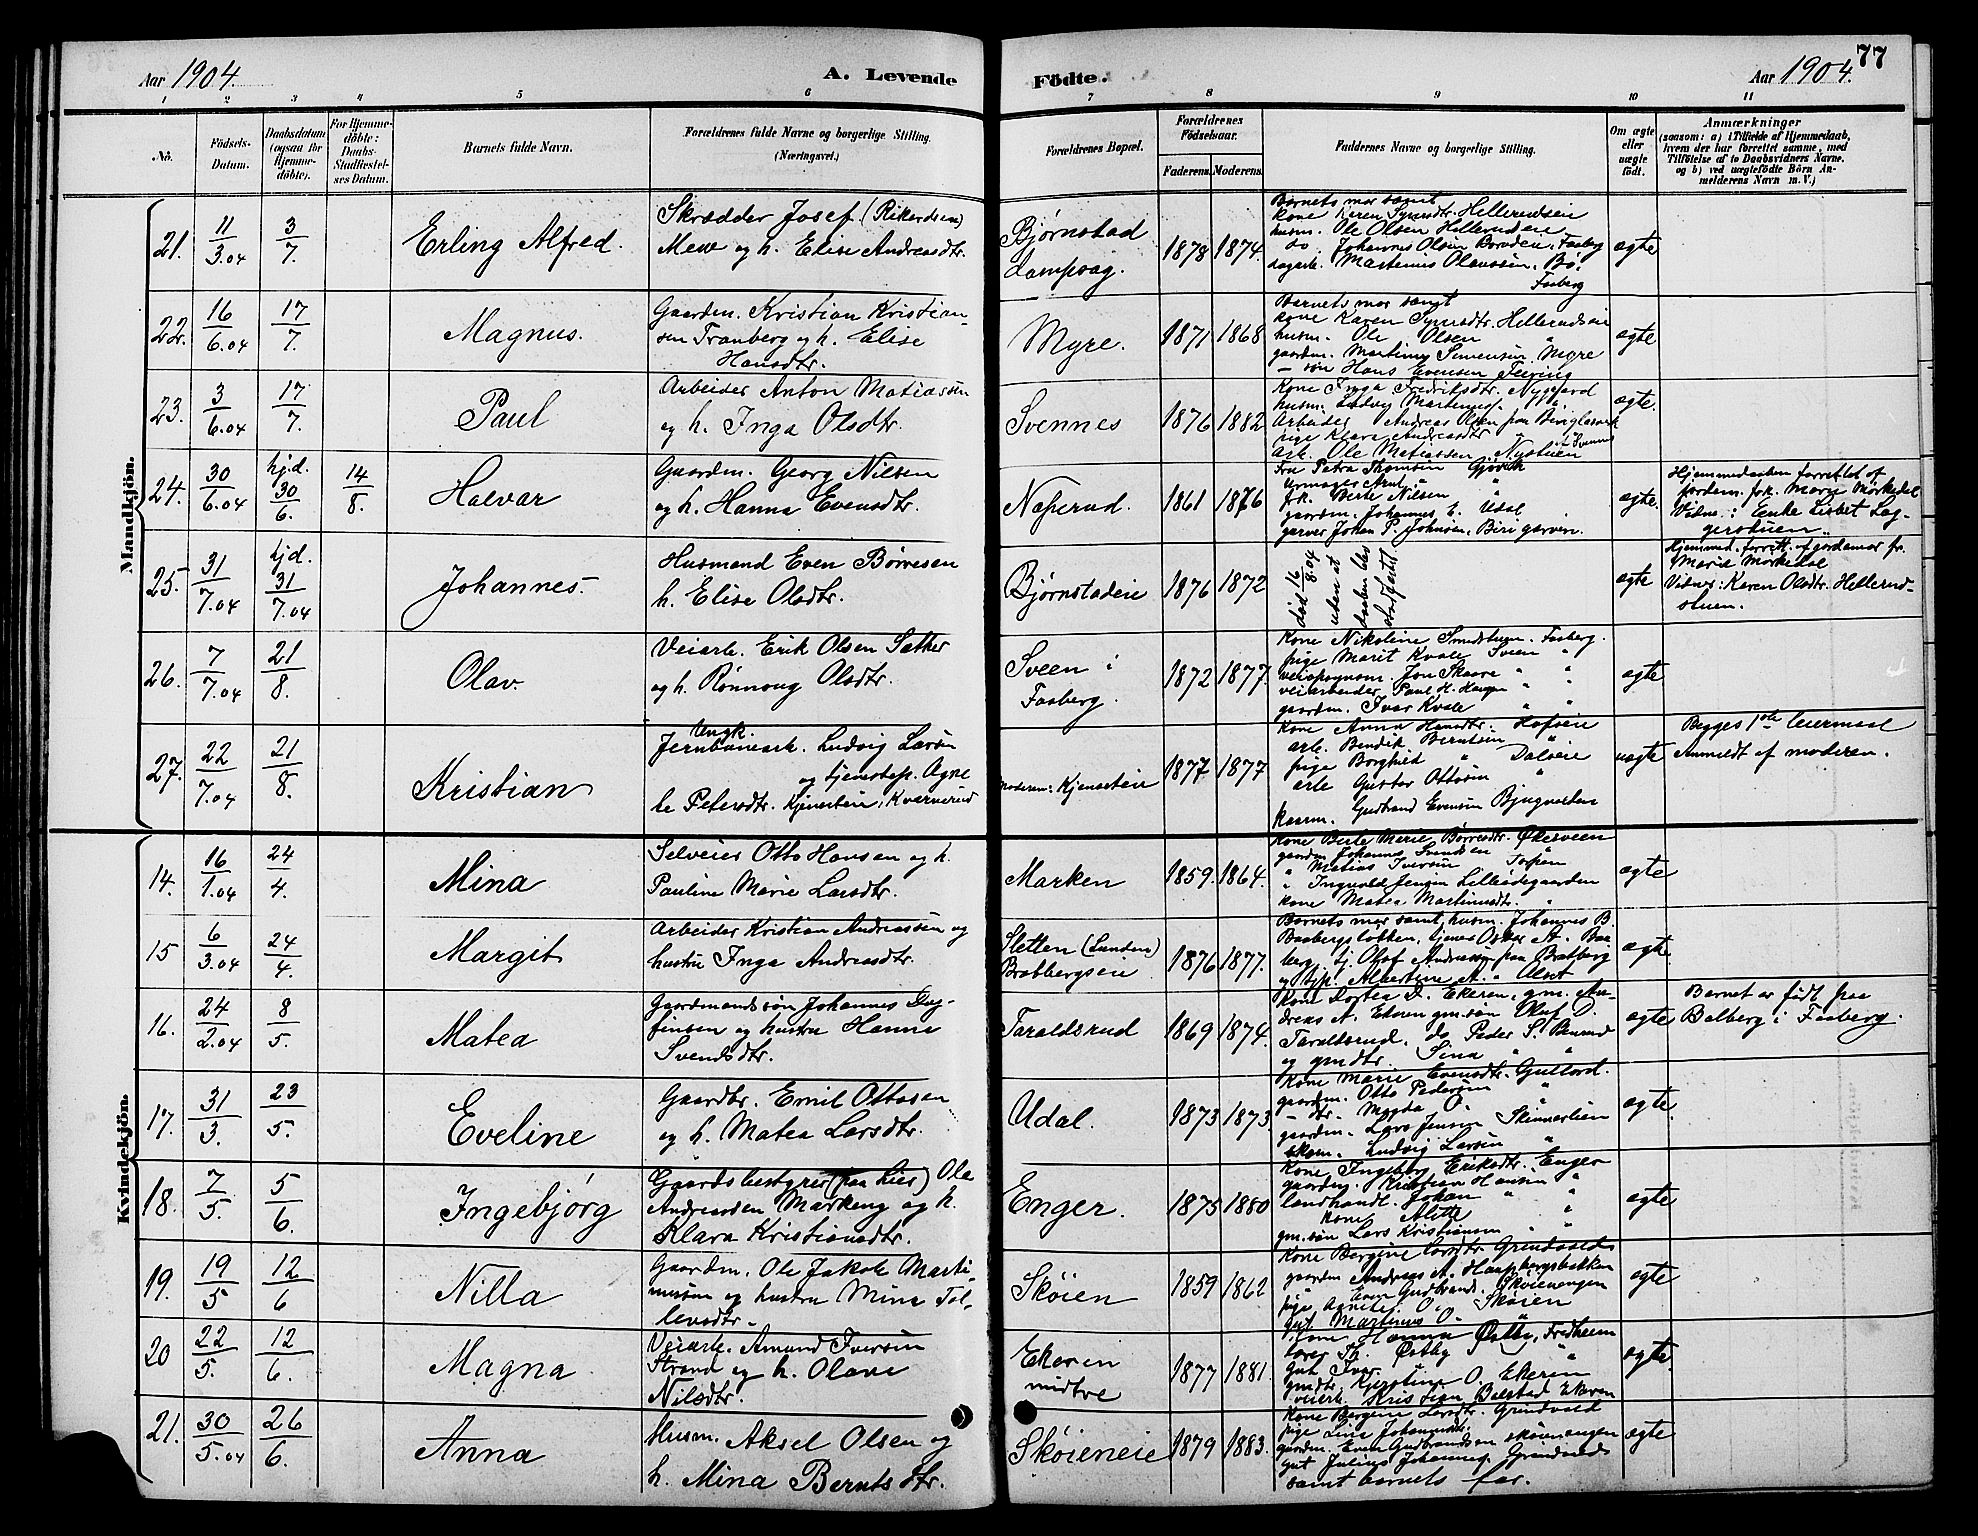 Aar 1904. A. Levende Födte. Aar 1904. 77
1 2 3 4 5 6 7 8 9 10 11
No.
Födsels-
Datum.
Daabsdatum
(ogsaa for
Hjemme-
döbte).
For Hjemme-
döbte:
Daabs-
Stadfæstel-
ses Datum.
Barnets fulde Navn.
Forældrenes fulde Navne og borgerlige Stilling.
(Næringsvei.)
Forældrenes Bopæl.
Forældrenes
Födselsaar.
Faderens. Moderens.
Faddernes Navne og borgerlige Stilling.
Om ægte
eller
uægte
födt.
Anmærkninger
(saasom: a) i Tilfælde af Hjemmedaab,
hvem der har forrettet samme, med
Tilföielse af to Daabsvidners Navne.
og b) ved uægtefödte Börn An-
melderens Navn m. V.)
Mandkjön.
21. 11/3.04 3/7. Erling Alfred.
Skrædder Josef (Rikardsen)
Mew og h. Elise Andreasdtr.
Bjørnstad
1878 1874.
Barnets mor samt
kone Karen Syversdtr. Hellerudseie
husm. Ole Olsen Hellerudeie
do Johannes Olsen Faaberg
Martinius Olaussen, Bø.
Faaberg
ægte
22. 16/6.04 17/7. Magnus.
Gaardm. Kristian Kristian-
sen Tranberg og h. Elise
Hansdtr.
Myre.
1871 1868
Barnets mor samt
kone Karen Syversdtr. Hellerudseie
husm. Ole Olsen "
gaardm. Martinus Simensen Myre
- søn Hans Evensen
ægte
23. 3/6.04 17/7. Paul
Arbeider Anton Matiassen
og h. Inga Olsdtr.
Svennes
1876 1882
Kone Inga Fredriksdtr. Nygaard
husm. Ludvig Martinus.
Arbeider Andreas Olsen paa Biriglasværk
pige Klara Andreasdtr
Arb. Ole Matiassen. Nystuen
ægte.
24. 30/6.04 hj.d. 30/6. 14/8. Halvar
Gaardm. Georg Nilsen
og h. Hanna Evensdtr.
Næperud.
1861 1876
Fru Petra Thomsen Gjøvik
Urmager "
frk. Berte Nilsen "
gaardm. Johannes E. Udal
garver Johan P. Johnsen, Biri garveri.
ægte.
Hjemmedaaben forrettet af
jordem. frk. Marie Mørkedal
Vidne: Enke Lisbet Lag-
gerstuen
25. 31/7.04 hj.d. 31/7.04 Johannes.
Husmand Even Børresen
h. Elise Olsdtr.
Bjørnstadeie
1876 1872
død 16/8.04
uden at
daaben blev
stadfæstet
ægte
Hjemmed. forrett. af jordemor fr.
Marie Mørkedal
Vidne: Karen Olsdtr. Hellerud-
stuen.
26. 7/7.04 21/8. Olav.
Veiarb. Erik Olsen Sæther
og h. Rønnoug Olsdtr.
Sveen i
Faaberg.
1872 1877.
Kone Nikoline Smedstuen. Faaberg.
pige Marit Kvale Sveen "
Jon Skaare " "
veiarbeider Paul H. Haugen " "
gaardm. Ivar Kvale " "
ægte
27. 22/7.04 21/8. Kristian
Ungk.
Jernbanearb. Ludvig Larsen
og tjenestep. Agne
te Petersdtr. Kjenseteie, Kvernerud
moderen: Kjenseteie
1877 1877
Kone Anna Hansdtr. Hofseie
arb. Bendik Berntsen "
pige Borghild " Dalseie
arb. Gustav Ottosen "
Gudbrand Evensen Bjugvolden
uægte
Begges 1ste leiermaal
Anmeldt af moderen.
Kvindekjön.
14. 16/1.04 24/4. Mina
Selveier Otto Hansen og h.
Pauline Marie Larsdtr.
Marken
1859. 1864.
Kone Berte Marie Børresdtr. Økersveen
gaardm. Johannes Svendsen "
" Matias Iversen
" Ingvald Jensen Lilleødegaarden
kone Matea Martinusdtr. "
ægte
15 6/3.04 24/4. Margit
Arbeider Kristian Andreassen og
hustru Inga Andreasdtr.
Sletten (Lunden)
Bratbergseie
1876 1877.
Barnets mor samt husm. Johannes B.
Oskar A.
berg, tj. Olaf Andreassen paa Bratberg
og tjp. Albertine A.
ægte.
16. 24/2.04 8/5. Matea
Gaardmandssøn Johannes Dag-
finsen og hustru Hanne
Svendsdtr.
Taraldsrud
1869 1874.
Kone Dortea D. Ekeren, gm. An-
dreas A. Ekeren gm.søn Oluf D.
Taraldsrud. do Peder S.
og gmdtr. Sina " "
ægte
Barnet er født paa
Balberg i Faaberg.
17. 31/3. 23/5. Eveline
Gaardbr. Emil Ottosen
og h. Matea Larsdtr.
Udal.
1873 1873
Kone Marie Evensdtr. Gullord.
gaardm. Otto Pedersen "
- dtr. Magda O. "
gaardm. Lars Jensen Skinnerlien
Ludvig Larsen "
ægte
18. 7/5. 5/6. Ingebjørg
Gaardsbestyrer (paa Lier) Ole
Andreassen Markeng og h.
Klara Kristiansdtr.
Enger.
1875 1880
Kone Ingeborg Eriksdtr. Enger
gaardm. Kristian Hansen "
landhandl. Johan " "
kone Alette "
gm.søn Lars Kristiansen " "
ægte
19. 19/5 12/6 Nilla
Gaardm. Ole Jakob Marti-
nussen og hustru Mina Tol-
levsdtr.
Skøien
1859 1862
Kone Bergine Larsdtr. Grindvold
gaardm. Andreas A. Haugsbergsbakken
" Even Gudbrands. Skøienengen
pige Agnethe O. Skøien
gut. Martinus O. "
ægte
20 22/5. 12/6. Magna
Veiarb. Amund Iversen
Strand og h. Olave
Nilsdtr.
Ekeren
midtre
1877 1881.
Kone Hanna Østby, Fredheim
lærer Th. Østby "
gut Ivar
gmdtr. Kjerstine O. Ekeren
veiarb. Kristian Balstad Ekeren
ægte
21. 30/5.04 26/6. Anna
Husm. Aksel Olsen og
h. Mina Berntsdtr.
Skøieneie
1879 1883.
Kone Bergine Larsdtr. Grindvold
pige Lina Johannesdtr.
gaardm. Even Gudbrandsen Skøienengen
gut Julius Johannes. Grindvold
samt barnets far.
ægte